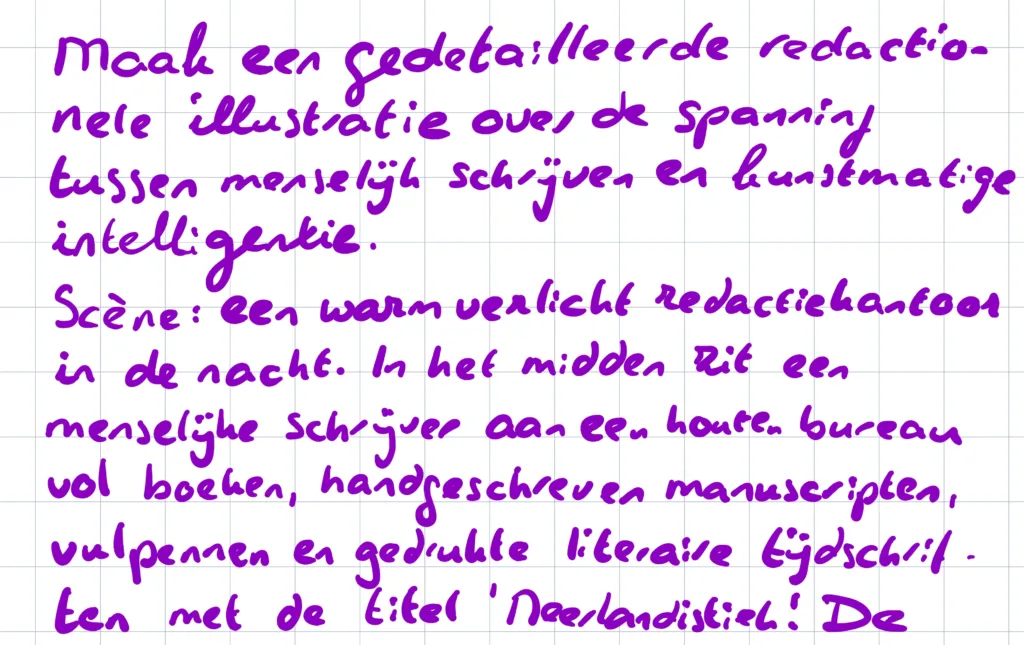 Maak een gedetailleerde redactio-
nele illustratie over de spanning
tussen menselijk schrijven en kunstmatige
intelligentie.
Scène: een warm verlicht redactiekantoor
in de nacht. In het midden zit een
menselijke schrijver aan een houten bureau
vol boeken, handgeschreven manuscripten,
vulpennen en gedrukte literaire tijdschrif-
ten met de titel 'Neerlandistiek'. De